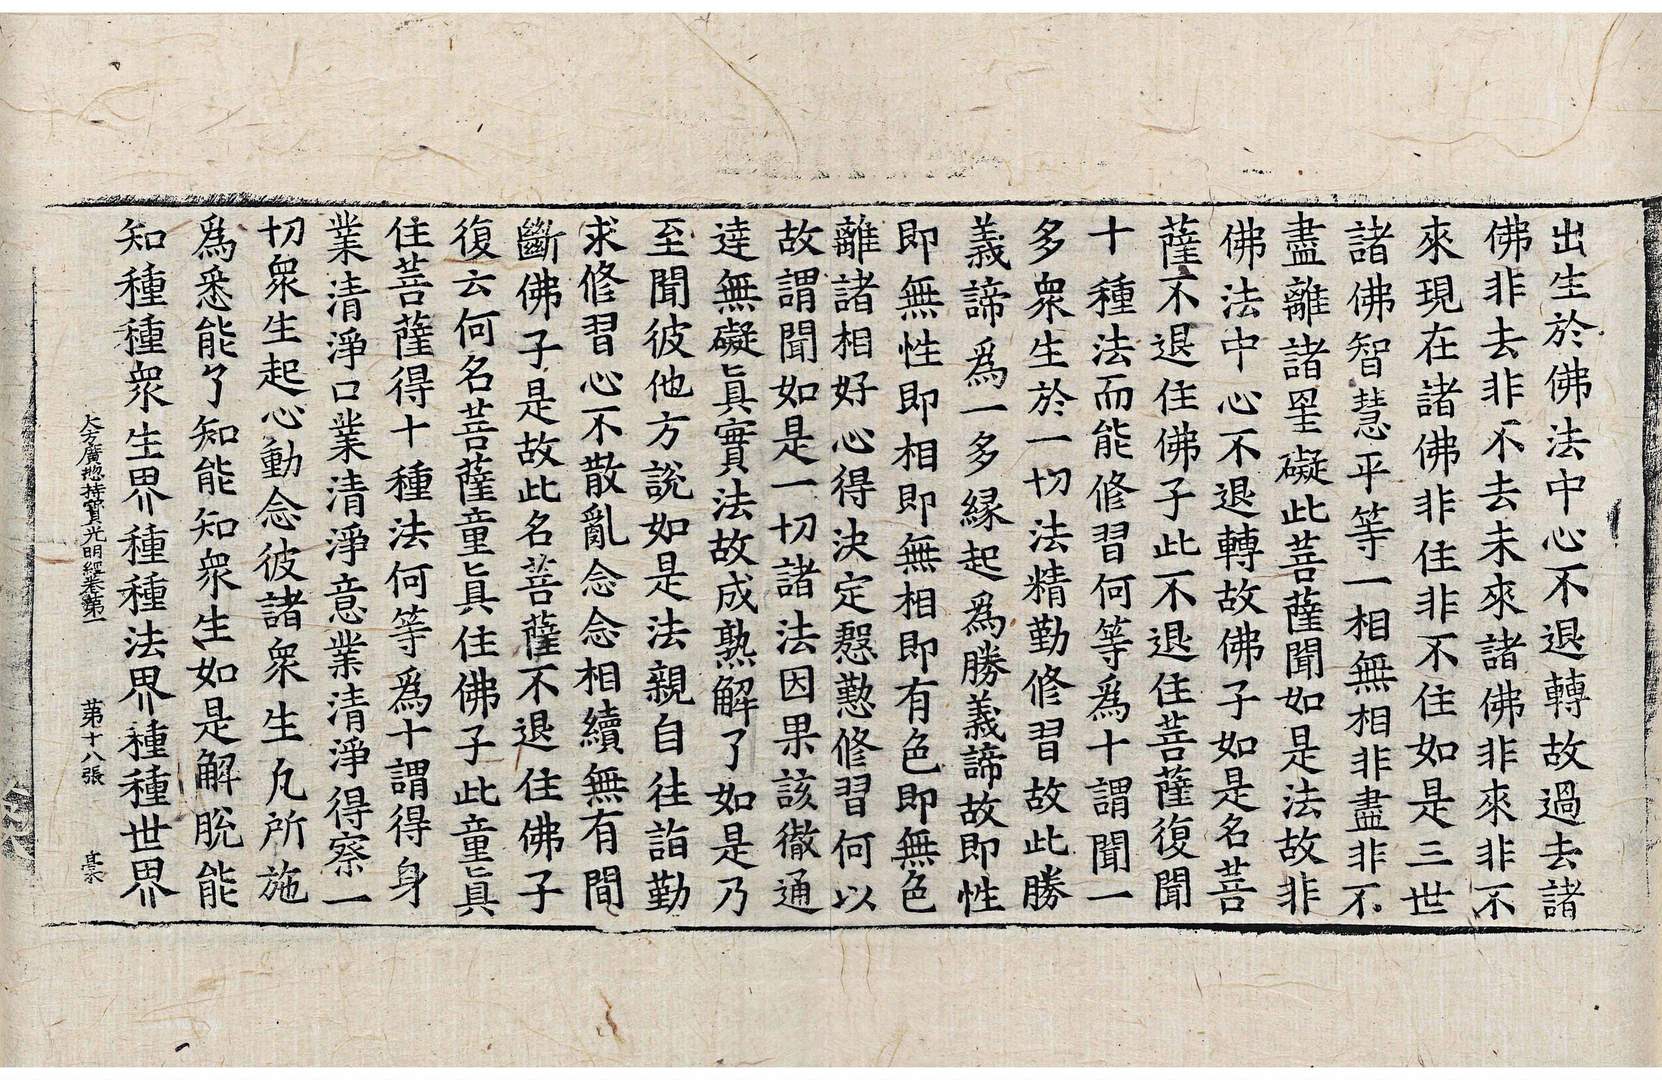 出生於佛法中心不退轉故過去諸
佛非去非不去未來諸佛非來非不
來現在諸佛非住非不住如是三世
諸佛智慧平等一相無相非盡非不
盡離諸罣礙此菩薩聞如是法故非
佛法中心不退轉故佛子如是名菩
薩不退住佛子此不退住菩薩復聞
十種法而能修習何等爲十謂聞一
多衆生於一切法精勤修習故此勝
義諦爲一多緣起爲勝義諦故即性
即無性即相即無相即有色即無色
離諸相好心得決定慇懃修習何以
故謂聞如是一切諸法因果該徹通
達無礙眞實法故成熟解了如是乃
至聞彼他方說如是法親自往詣勤
求修習心不散亂念念相續無有間
斷佛子是故此名菩薩不退住佛子
復云何名菩薩童眞住佛子此童眞
住菩薩得十種法何等爲十謂得身
業清淨口業清淨意業清淨得察一
切衆生起心動念彼諸衆生凡所施
爲悉能了知能知衆生如是解脫能
知種種衆生界種種法界種種世界
大方廣揔持寶光明經卷第一 第十八張 豪